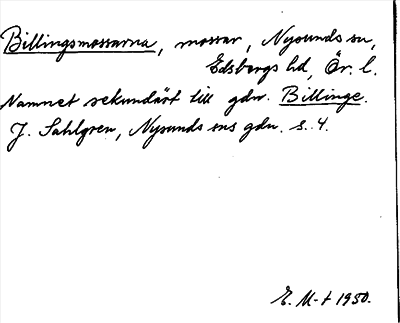 Billingsmossarna, mossar, Nysunds sn,
Edsbergs hd, Ör. l.
Namnet sekundärt till gdn. Billinge.
J. Sahlgren, Nysunds sns gdn. s. 4.
E. M-t 1950.